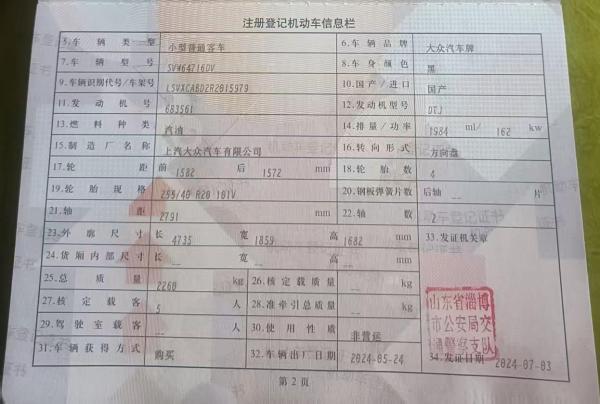 注册登记机动车信息栏
5.车辆类型 小型普通客车 6.车辆品牌 大众汽车牌
7.车辆型号 SVW64716DV 8.车身颜色 黑
9.车辆识别代号/车架号 LSVXCABD2R2015979 10.国产/进口 国产
11.发动机号 683561 12.发动机型号 DTJ
13.燃料种类 汽油 14.排量/功率 1984 ml/ 162 kw
15.制造厂名称 上汽大众汽车有限公司 16.转向形式 方向盘
17.轮距 前 1582 后 1572 mm 18.轮胎数 4
19.轮胎规格 255/40 R20 101V 20.钢板弹簧片数 后轴 -- 片
21.轴距 2791 mm 22.轴数 2
23.外廓尺寸 长 4735 宽 1859 高 1682 mm 33.发证机关章
24.货厢内部尺寸 长 -- 宽 -- 高 -- mm
25.总质量 2260 kg 26.核定载质量 -- kg
27.核定载客 5 人 28.准牵引总质量 -- kg
山东省淄博
市公安局交
通警察支队
29.驾驶室载客 -- 人 30.使用性质 非营运
31.车辆获得方式 购买 32.车辆出厂日期 2024-05-24 34.发证日期 2024-07-03
第2页